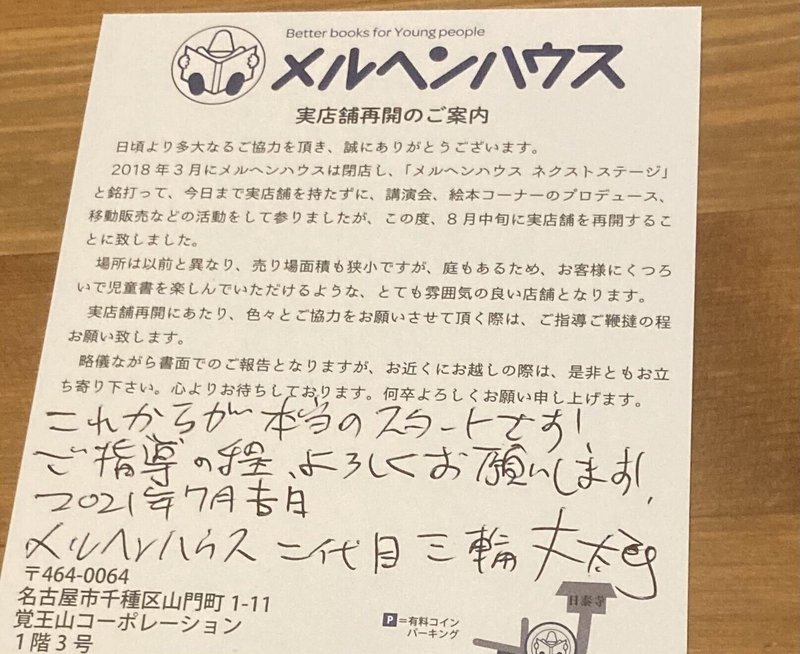 Better books for Young people
メルヘンハウス
実店舗再開のご案内
日頃より多大なるご協力を頂き、誠にありがとうございます。
2018年3月にメルヘンハウスは閉店し、「メルヘンハウス ネクストステージ」
と銘打って、今日まで実店舗を持たずに、講演会、絵本コーナーのプロデュース、
移動販売などの活動をして参りましたが、この度、8月中旬に実店舗を再開するこ
とに致しました。
場所は以前と異なり、売り場面積も狭小ですが、庭もあるため、お客様にくつろ
いで児童書を楽しんでいただけるような、とても雰囲気の良い店舗となります。
実店舗再開にあたり、色々とご協力をお願いさせて頂く際は、ご指導ご鞭撻の程
お願い致します。
略儀ながら書面でのご報告となりますが、お近くにお越しの際は、是非ともお立
ち寄り下さい。心よりお待ちしております。何卒よろしくお願い申し上げます。
これからが本当のスタートです!
ご指導の程、よろしくお願いします!
2021年7月吉日
メルヘンハウス 二代目 三輪 丈太郎
〒464-0064
名古屋市千種区山門町 1-11
覚王山コーポレーション
1階3号
P=有料コイン
パーキング
日泰寺